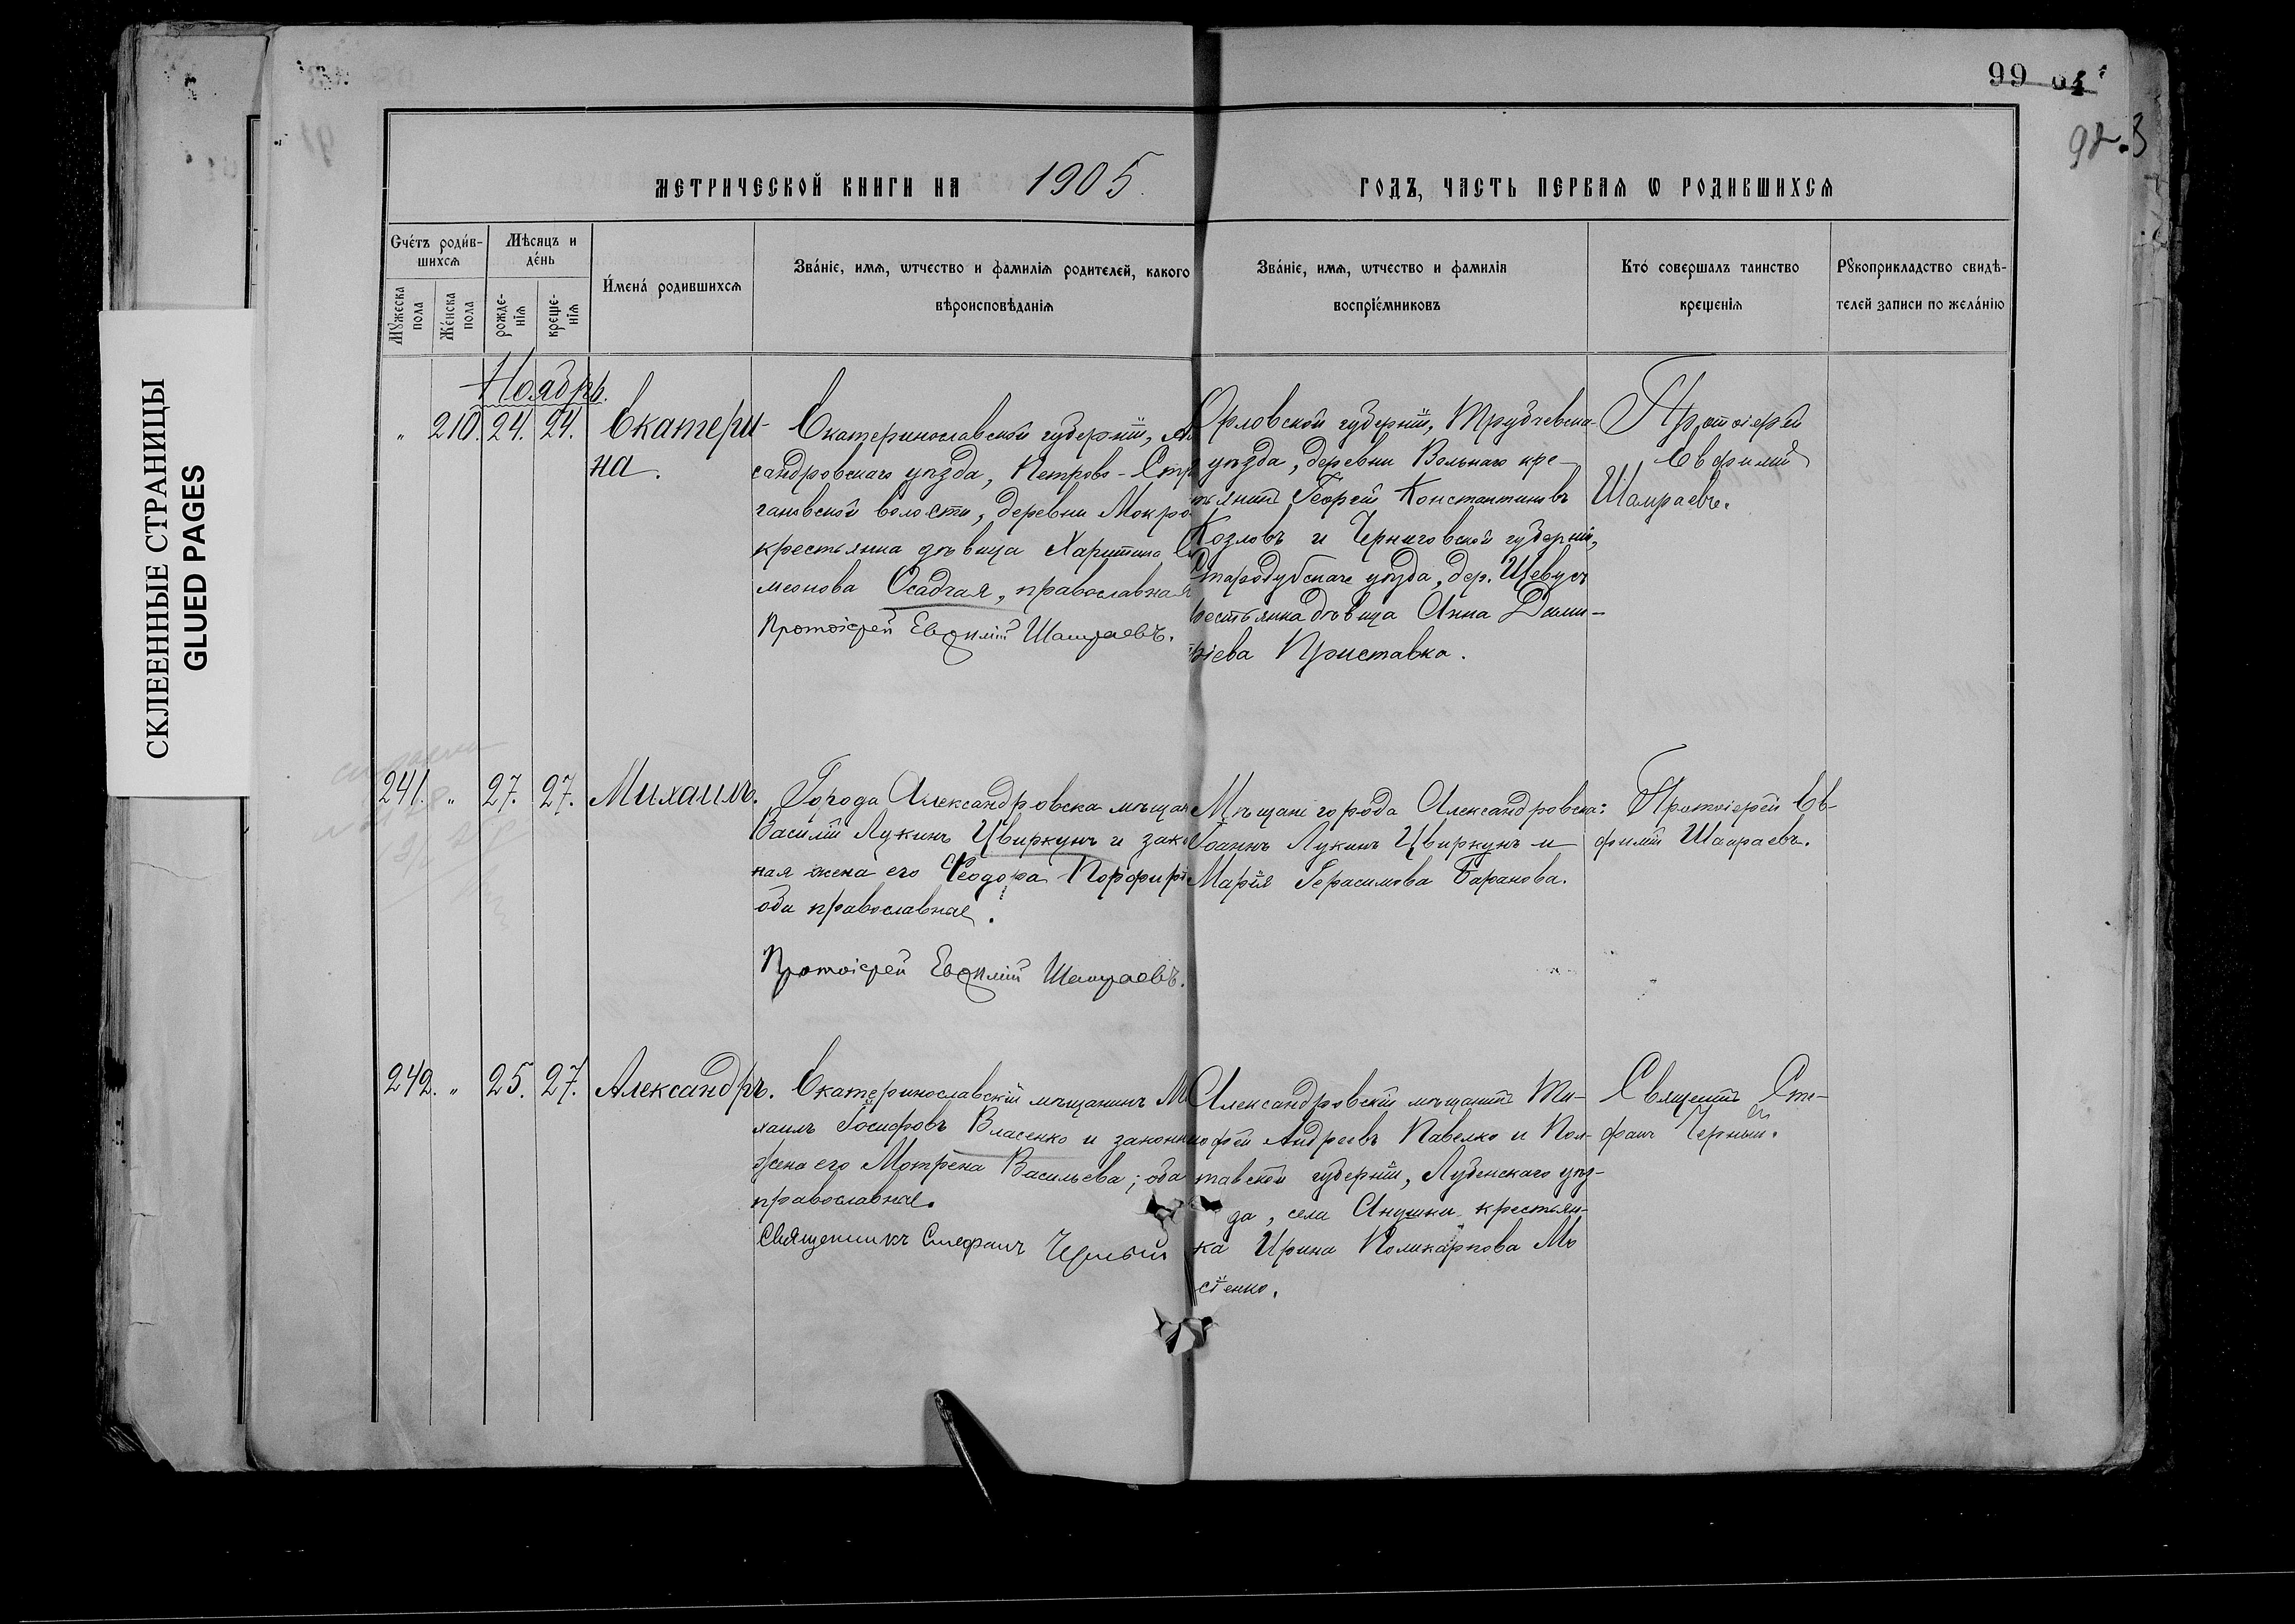 99
92.
СКЛЕЕННЫЕ СТРАНИЦЫ
GLUED PAGES
МЕТРИЧЕСКОЙ КНИГИ НА 1905. ГОДЪ, ЧАСТЬ ПЕРВАЯ Ѡ РОДИВШИХСЯ
Счетъ родив-
шихся
Мѣсяцъ и
день
Мужеска
пола
Женска
пола
рожде-
нія
креще-
нія
Имена родившихся
Званіе, имя, ѡтчество и фамилія родителей, какого
вѣроисповѣданія
Званіе, имя, ѡтчество и фамилія
воспріемниковъ
Кто совершалъ таинство
крещенія
Рукоприкладство свидѣ-
телей записи по желанію
Ноябрь.
" 210. 24. 24.
Екатери-
на.
Екатеринославской губерніи, Але
сандровскаго уѣзда, Петрово-Стр
гановской волости, деревни Мокро
крестьянка дѣвица Харитина Си
меонова Осадчая, православная
Протоіерей Евѳимій Шамраевъ.
Орловской губерніи, Трубчевска-
уѣзда, деревни Вольнаго кре-
тьянинъ Георгій Константиновъ
Козловъ и Черниговской губерніи,
Стародубскаго уѣзда, дер.
рестьянка дѣвица Анна Дими-
ріева Приставка.
Протоіерей
Евфимій
Шамраевъ.
241. " 27. 27. Михаилъ.
Города Александровска мѣщан
Василій Лукинъ Цвиркунъ и зако
ная жена его Ѳеодора Порфирі
оба православные.
Протоіерей Евѳимій Шамраевъ.
Мѣщане города Александровска:
Іоаннъ Лукинъ Цвиркунъ и
Марія Герасимова Баранова.
Протоіерей Ев-
фимій Шамраевъ.
242. " 25. 27. Александръ.
Екатеринославскій мѣщанинъ М
хаилъ Іосифовъ Власенко и законн
жена его Мотрена Васильева; оба
православные.
Священникъ Стефанъ Черный
Александровскій мѣщанинъ Ти-
мофей Андреевъ Павелко и Пол-
тавской губерніи, Лубенскаго уѣз-
да, села крестьян-
ка Ирина Поликарпова Мо
сіенко.
Священникъ Сте-
фанъ Черный.